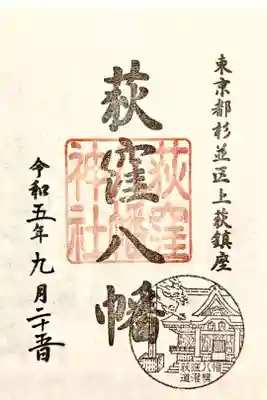 東京都杉並区上荻鎮座
荻窪八幡
荻窪八幡神社
令和五年九月二十五日
荻窪八幡
道灌槇